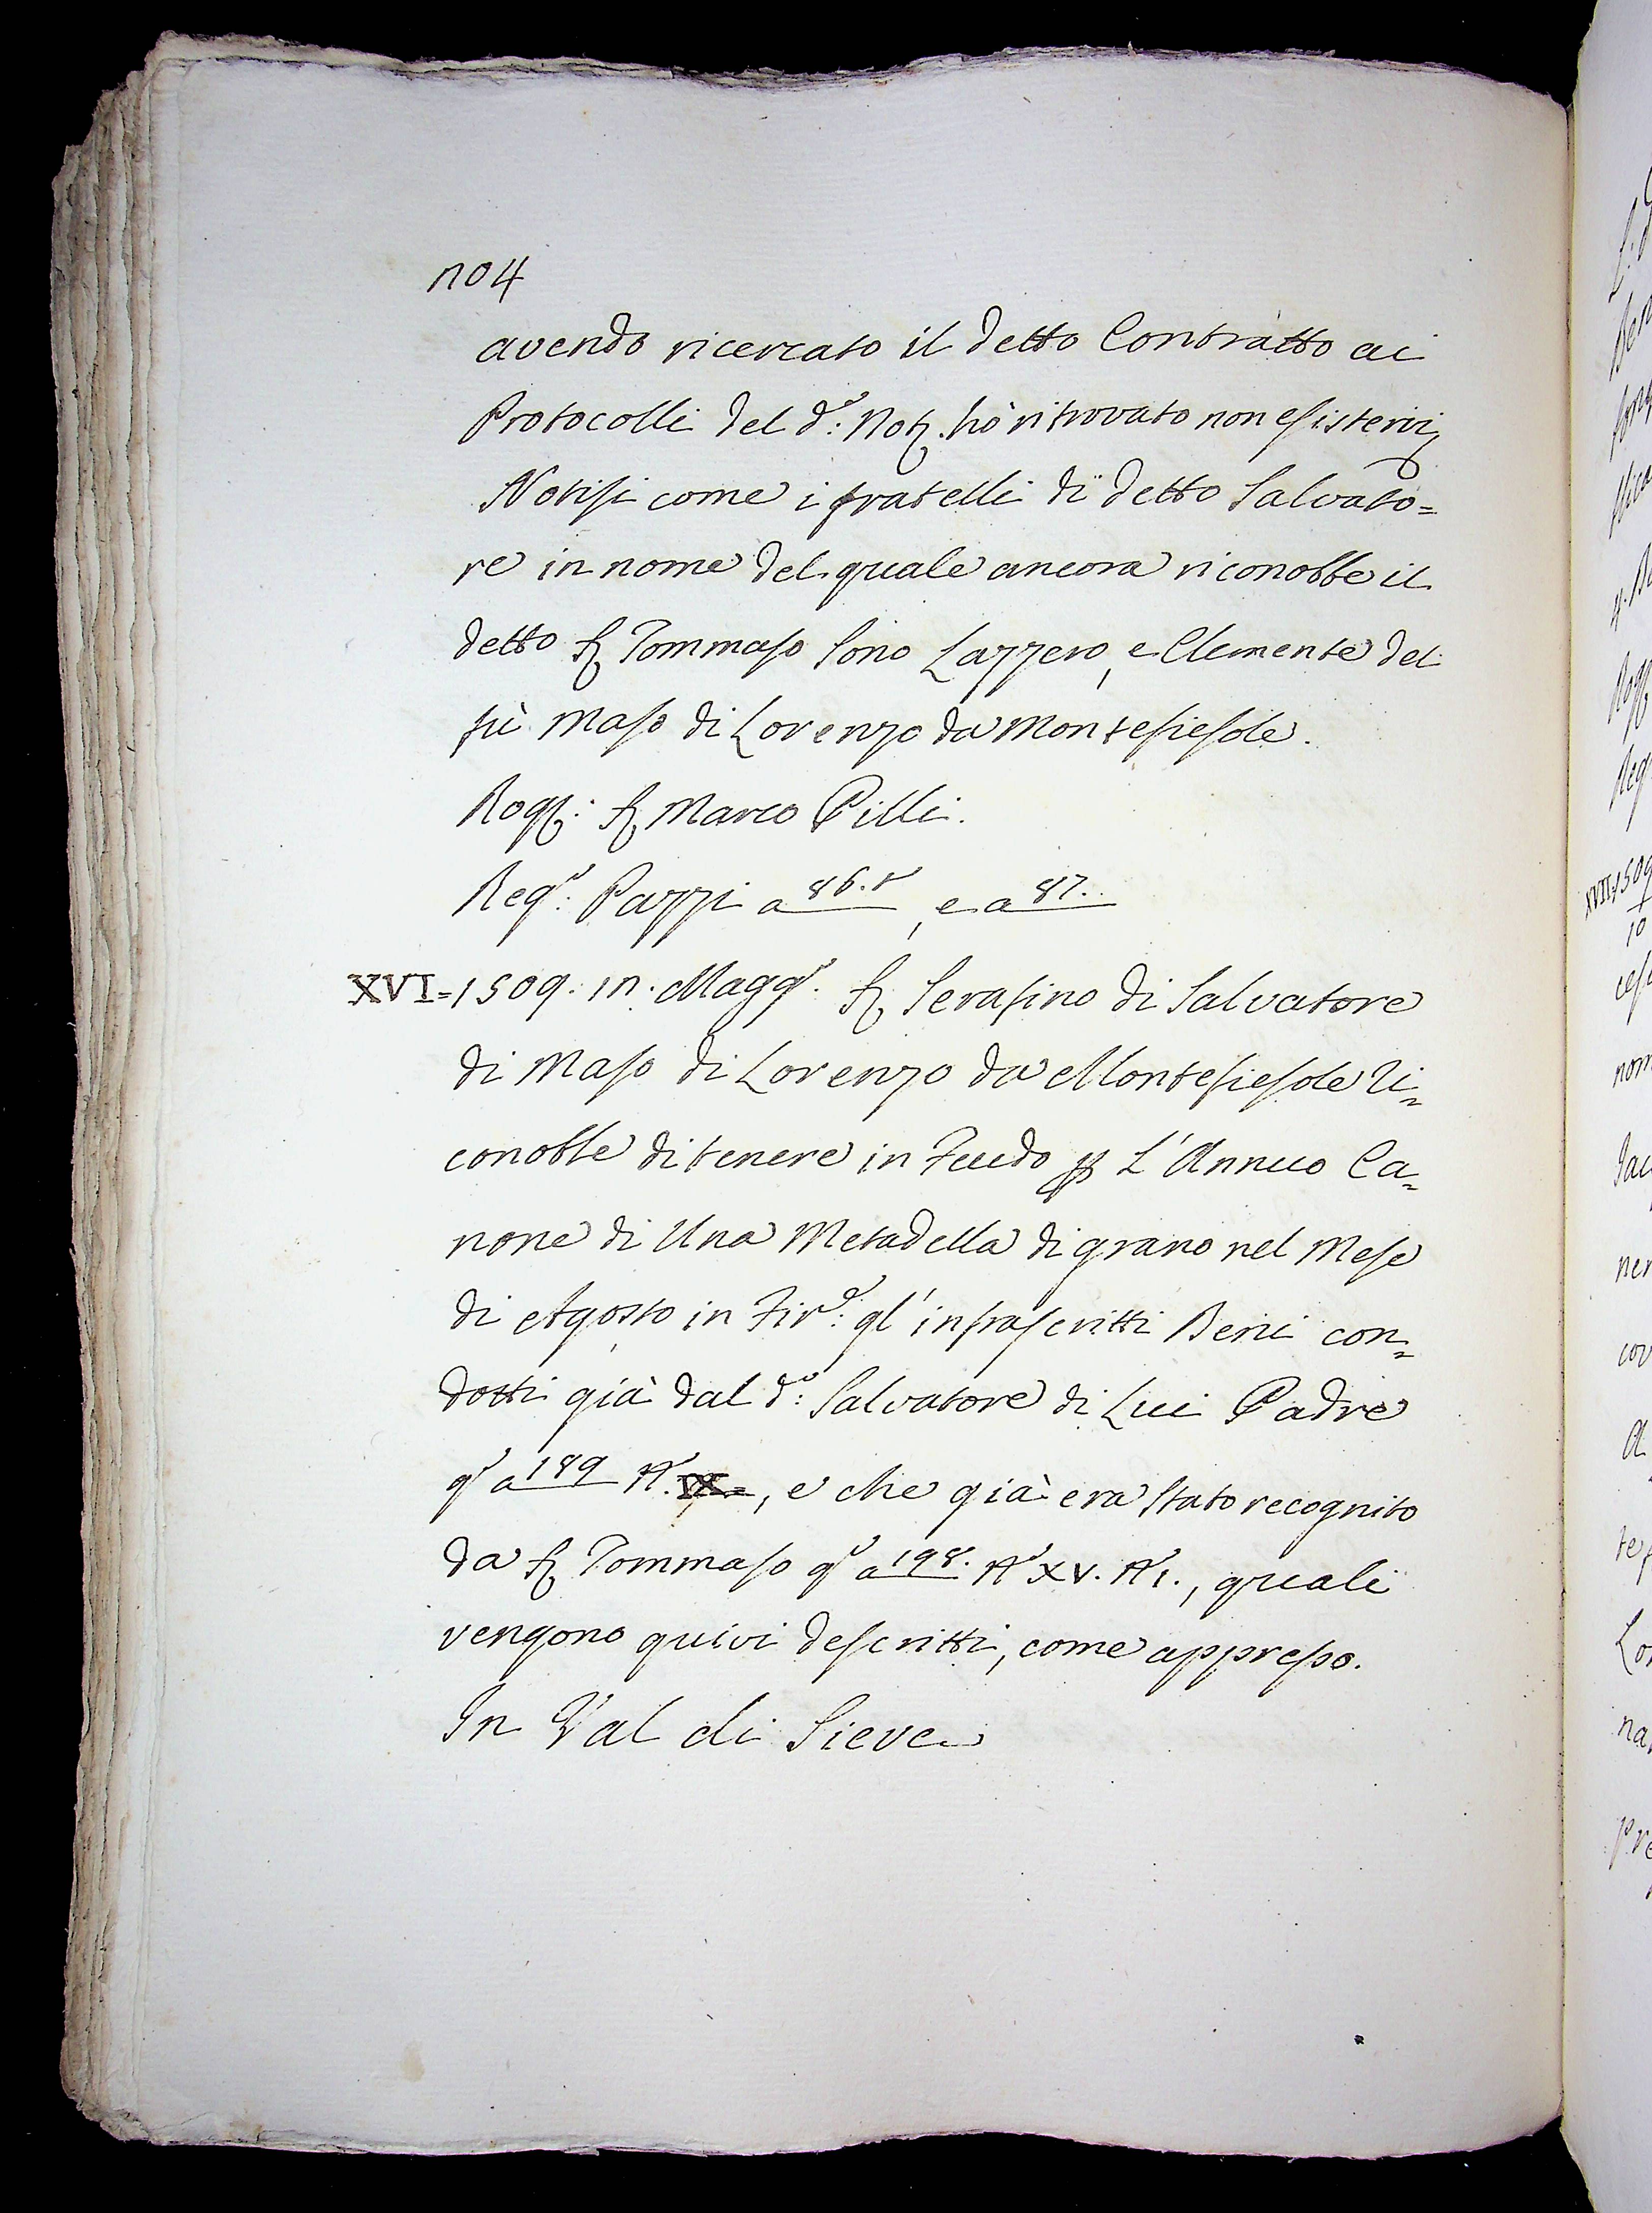 no4
avendo ricercato il detto Contratto ai
Protocolli del d.º: Not. hò ritrovato non esistervi,
Notisi come i fratelli di detto Salvato=
re in nome del quale ancora riconobbe il
detto S. Tommaso sono Lazzero, e Clemente del
fù Maso di Lorenzo da Montefiesole.
Rog: S. Marco Pilli.
Reg.º: Pazzi a 86.t, e a 87..
XVI=1509. in. Magg.º. S. Serafino di Salvatore
di Maso di Lorenzo da Montefiesole Ri=
conobbe di tenere in Feudo p L'Annuo Ca=
none di Una Metadella di grano nel Mese
di Agosto in Fir.e: gl'infrascritti Beni con=
dotti già dal d.º: Salvatore di Lui Padre
q.º a 189 N.º IX=, e che già era stato recognito
da S. Tommaso q.º a 198. N.º XV. N.º 1., quali
vengono quivi descritti, come appresso.
In Val di Sieve